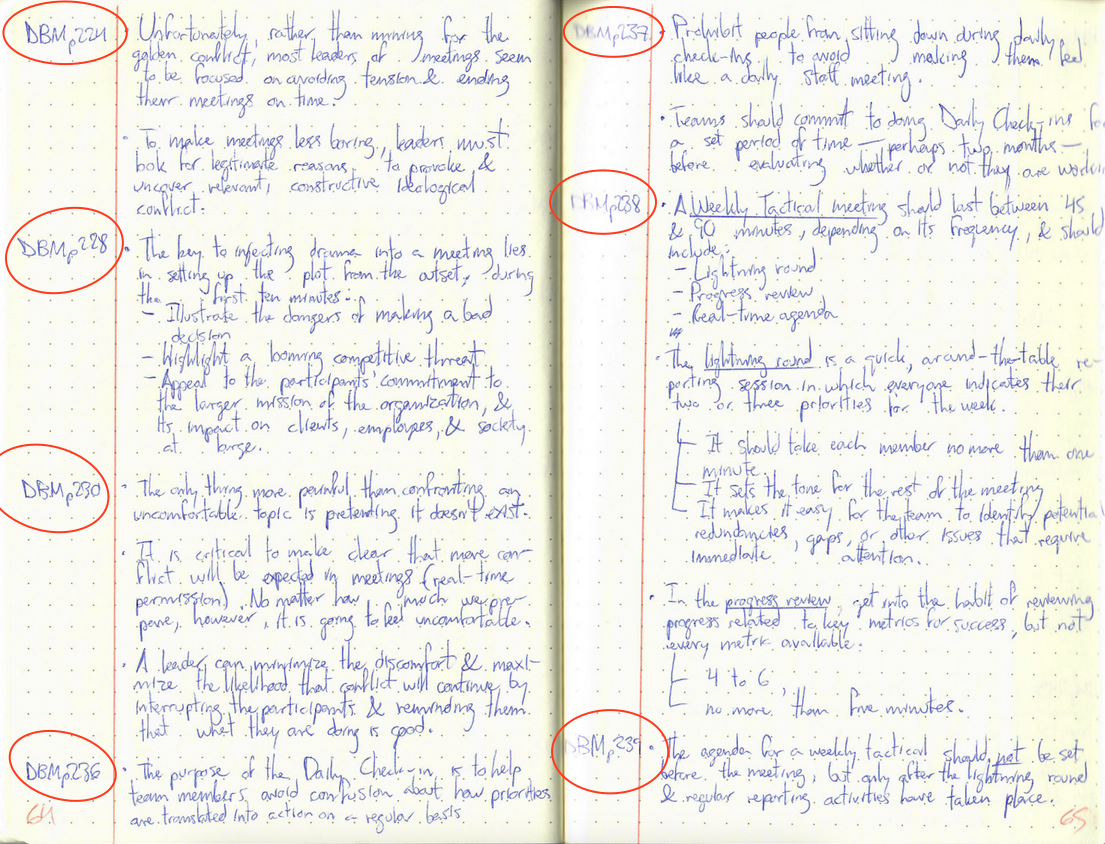 DBM p224
• Unfortunately, rather than mining for the
golden conflict, most leaders of meetings seem
to be focused on avoiding tension & ending
their meetings on time.
• To make meetings less boring, leaders must
look for legitimate reasons to provoke &
uncover relevant, constructive ideological
conflict.
DBM p228
• The key to injecting drama into a meeting lies
in setting up the plot from the outset, during
the first ten minutes:
– Illustrate the dangers of making a bad
decision
– Highlight a looming competitive threat
– Appeal to the participants' commitment to
the larger mission of the organization, &
its impact on clients, employees, & society
at large.
DBM p230
• The only thing more painful than confronting an
uncomfortable topic is pretending it doesn't exist.
• It is critical to make clear that more con-
flict will be expected in meetings (real-time
permission). No matter how much we pre-
pare, however, it is going to feel uncomfortable.
• A leader can minimize the discomfort & maxi-
mize the likelihood that conflict will continue by
interrupting the participants & reminding them
that what they are doing is good.
DBM p236
• The purpose of the Daily Check-in is to help
team members avoid confusion about how priorities
are translated into action on a regular basis.
64
DBM p237
• Prohibit people from sitting down during daily
check-ins to avoid making them feel
like a daily staff meeting.
• Teams should commit to doing Daily Check-ins for
a set period of time – perhaps two months –
before evaluating whether or not they are workin
DBM p238
• A Weekly Tactical meeting should last between 45
& 90 minutes, depending on its frequency, & should
include:
– Lightning round
– Progress review
– Real-time agenda
• The lightning round is a quick, around-the-table re-
porting session in which everyone indicates their
two or three priorities for the week.
It should take each member no more than one
minute.
It sets the tone for the rest of the meeting
It makes it easy for the team to identify potential
redundancies, gaps, or other issues that require
immediate attention.
• In the progress review, get into the habit of reviewing
progress related to key metrics for success, but not
every metric available.
4 to 6
no more than five minutes.
DBM p239
• The agenda for a weekly tactical should not be set
before the meeting, but only after the lightning round
& regular reporting activities have taken place.
65